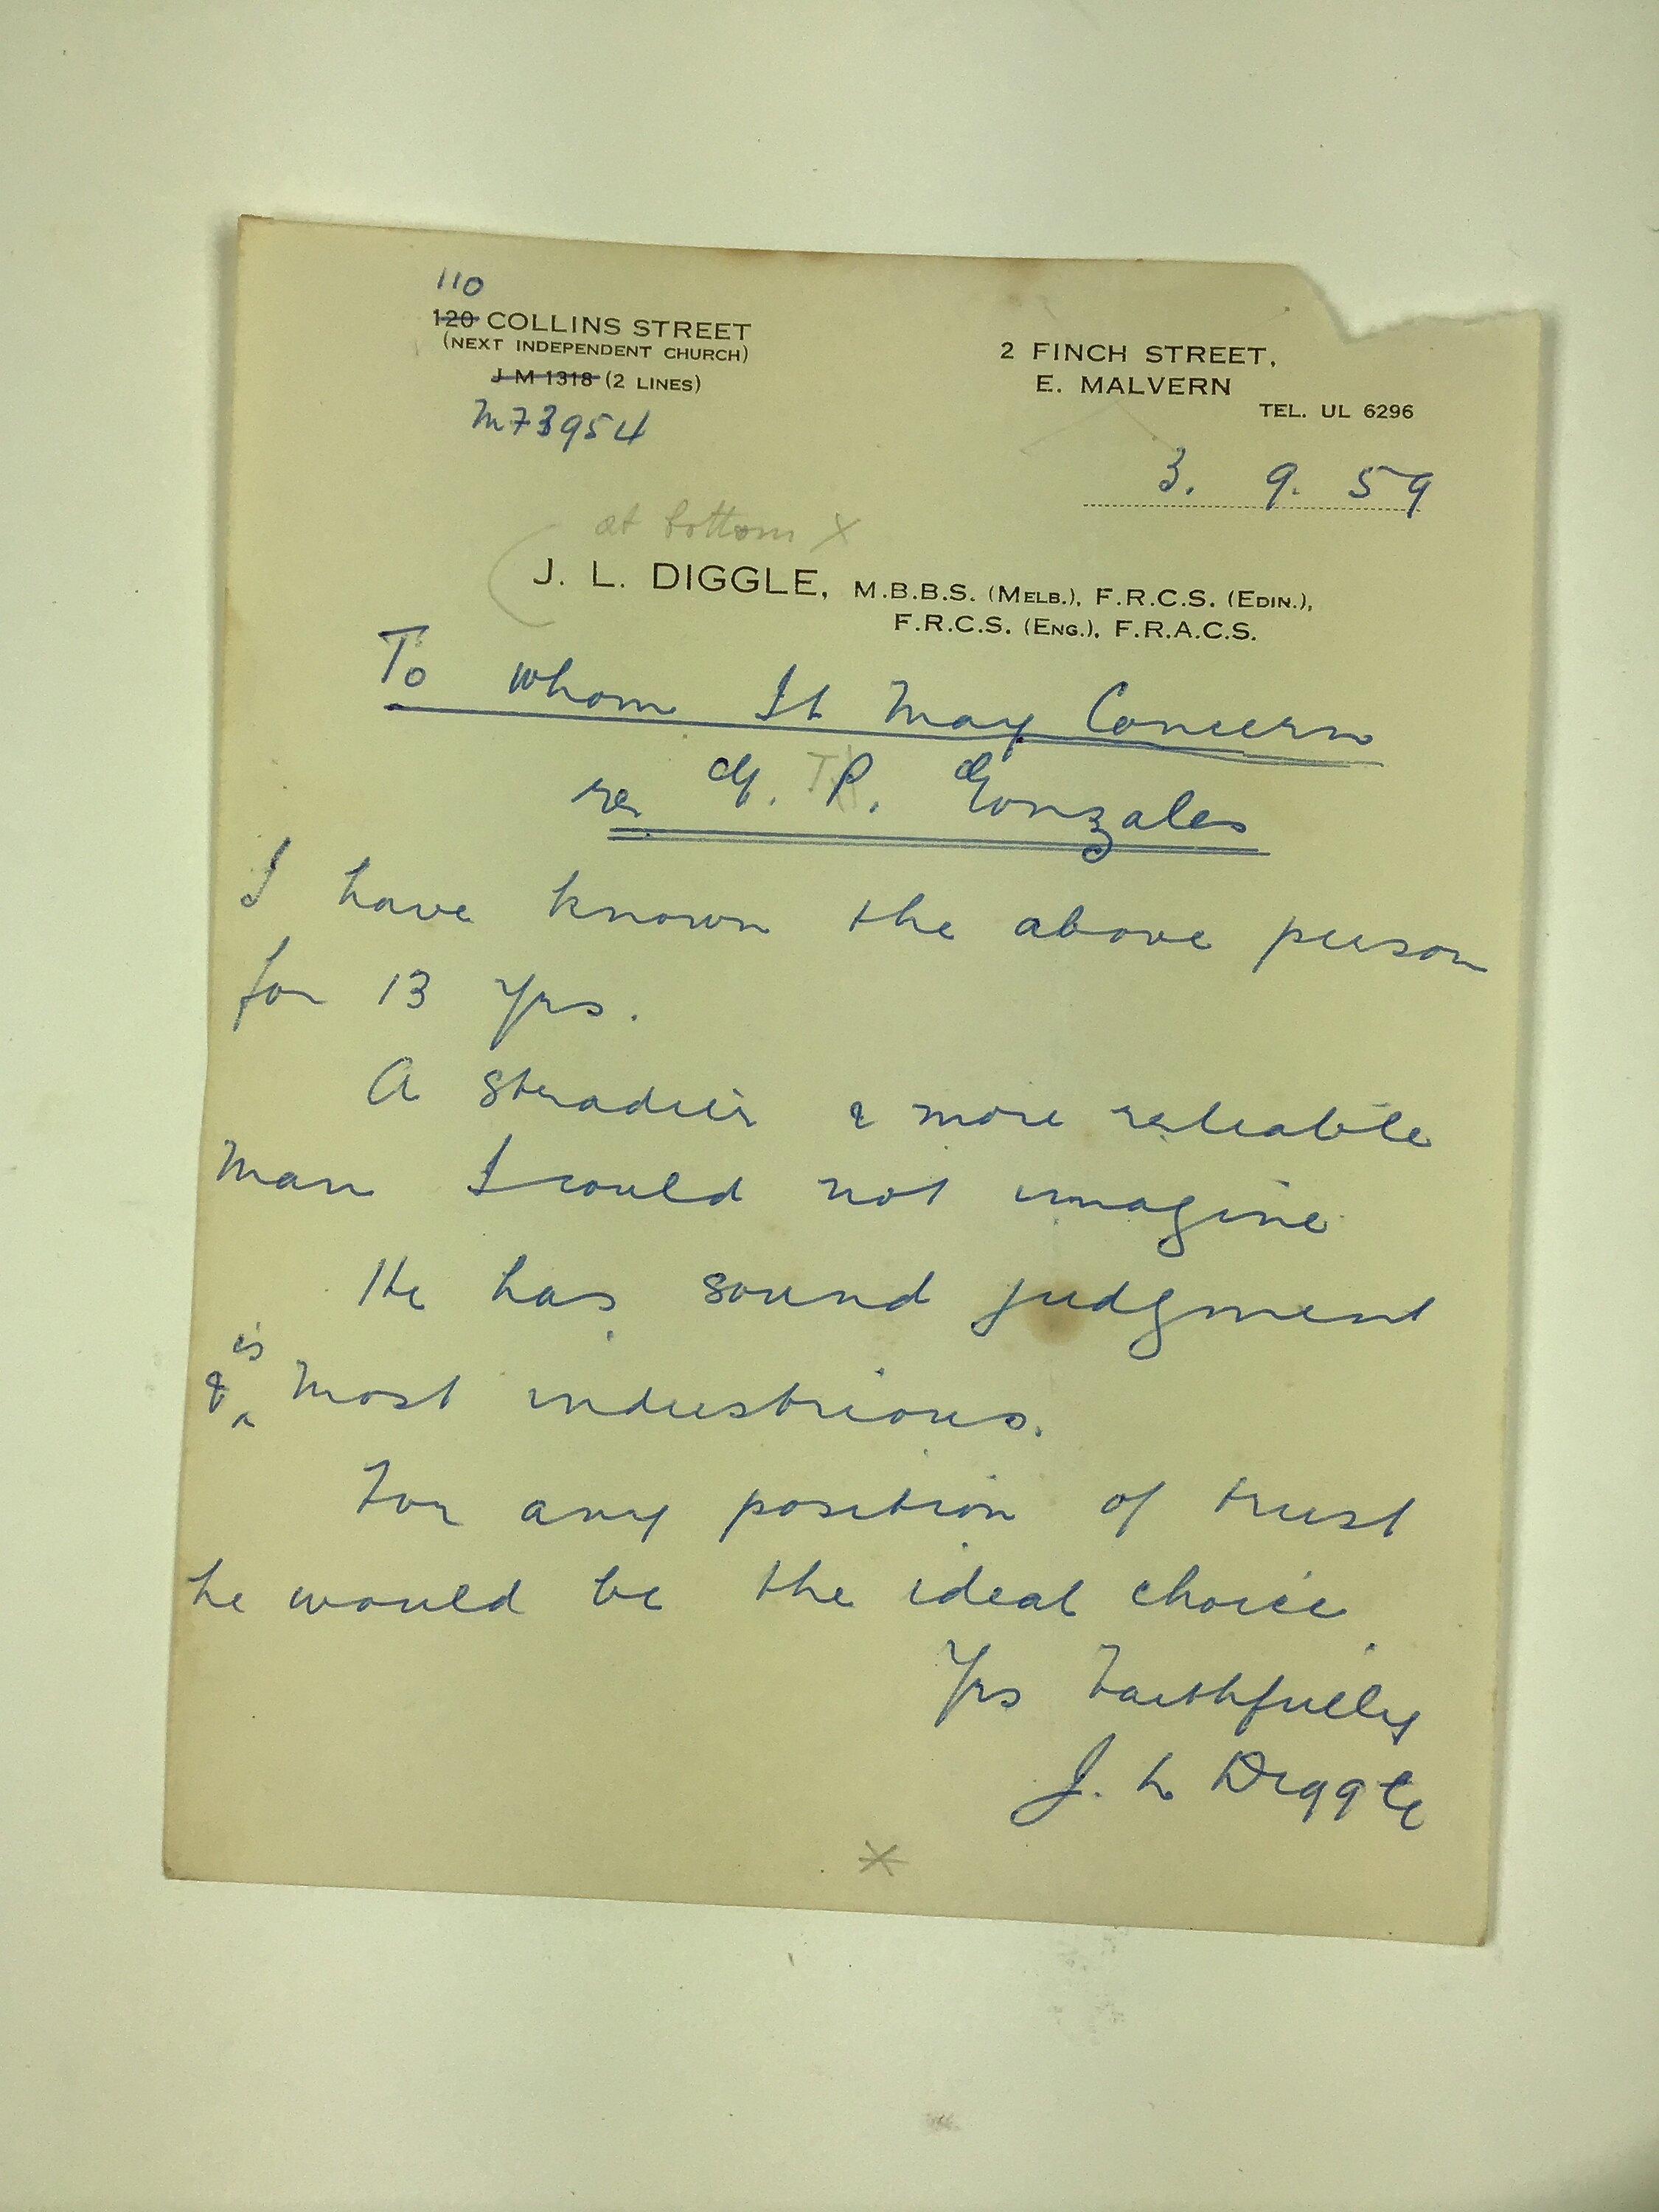 110
120 COLLINS STREET
(NEXT INDEPENDENT CHURCH)
J M 1318 (2 LINES)
M73954
2 FINCH STREET,
E. MALVERN
TEL. UL 6296
3. 9. 59
at bottom X
J. L. DIGGLE, M.B.B.S. (MELB.), F.R.C.S. (EDIN.),
F.R.C.S. (ENG.), F.R.A.C.S.
To whom It May Concern
re G. P. Gonzales
I have known the above person
for 13 yrs.
A steadier & more reliable
man I could not imagine.
He has sound judgment
& is most industrious.
For any position of trust
he would be the ideal choice.
Yrs Faithfully
J. L Diggle